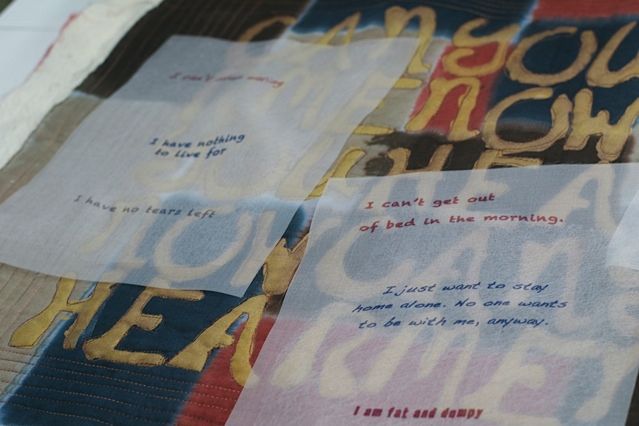 CAN YOU
ME NOW
HEA
NOW CAN
HEA
ARME
I can't
I have nothing
to live for
I have no tears left
I can't get out
of bed in the morning.
I just want to stay
home alone. No one wants
to be with me, anyway.
I am fat and dumpy